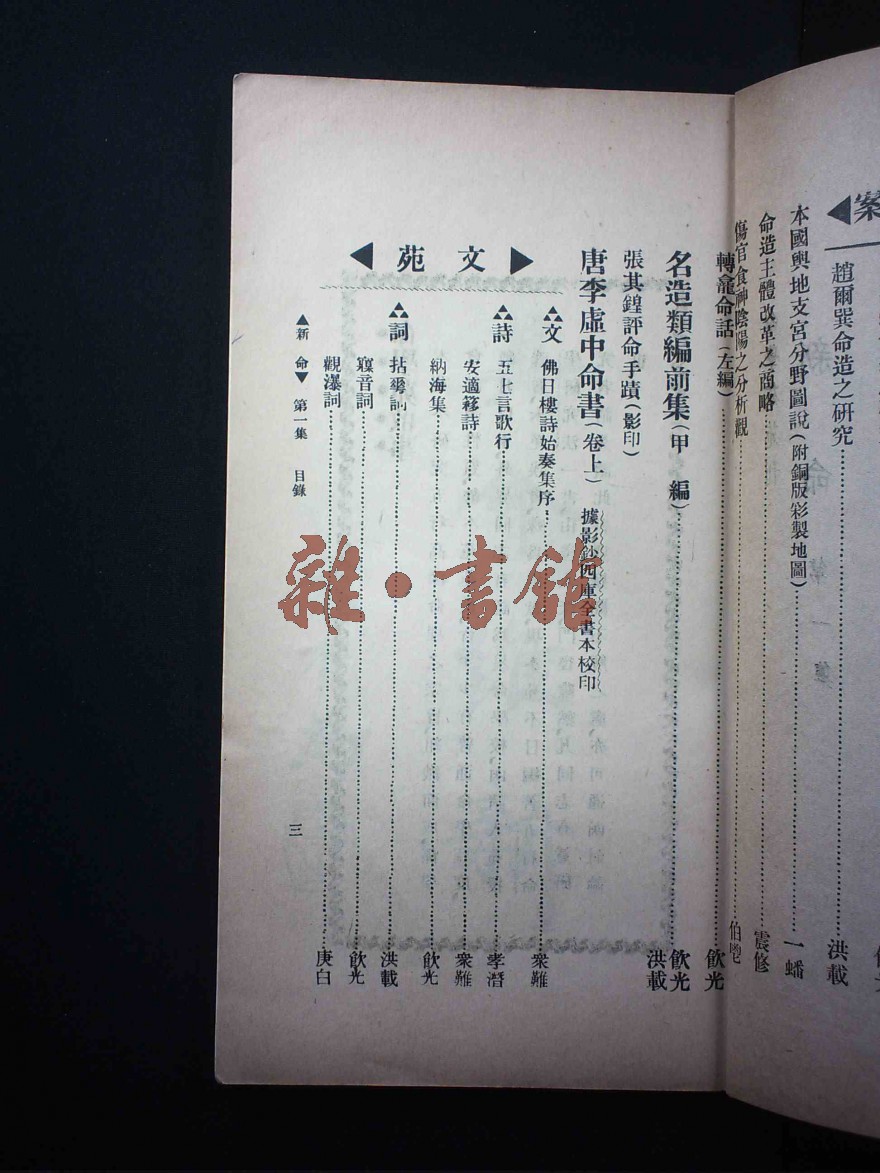 案◀
趙爾巽命造之研究 洪載
本國輿地支宮分野圖說(附銅版彩製地圖) 一蟠
命造主體改革之商略 震修
傷官食神陰陽之分析觀
轉龕命話(左編) 飲光
名造類編前集(甲編) 飲光 洪載
張其鍠評命手蹟(影印)
唐李虛中命書(卷上) 據影鈔四庫全書本校印
▶文苑◀
文 佛日樓詩始奏集序 衆難
詩 五七言歌行 孝潛
安適簃詩 衆難
納海集 飲光
詞 拈花詞 洪載
寱音詞 飲光
觀瀑詞 庚白
▲新命▼ 第一集 目錄
三
雜·書館